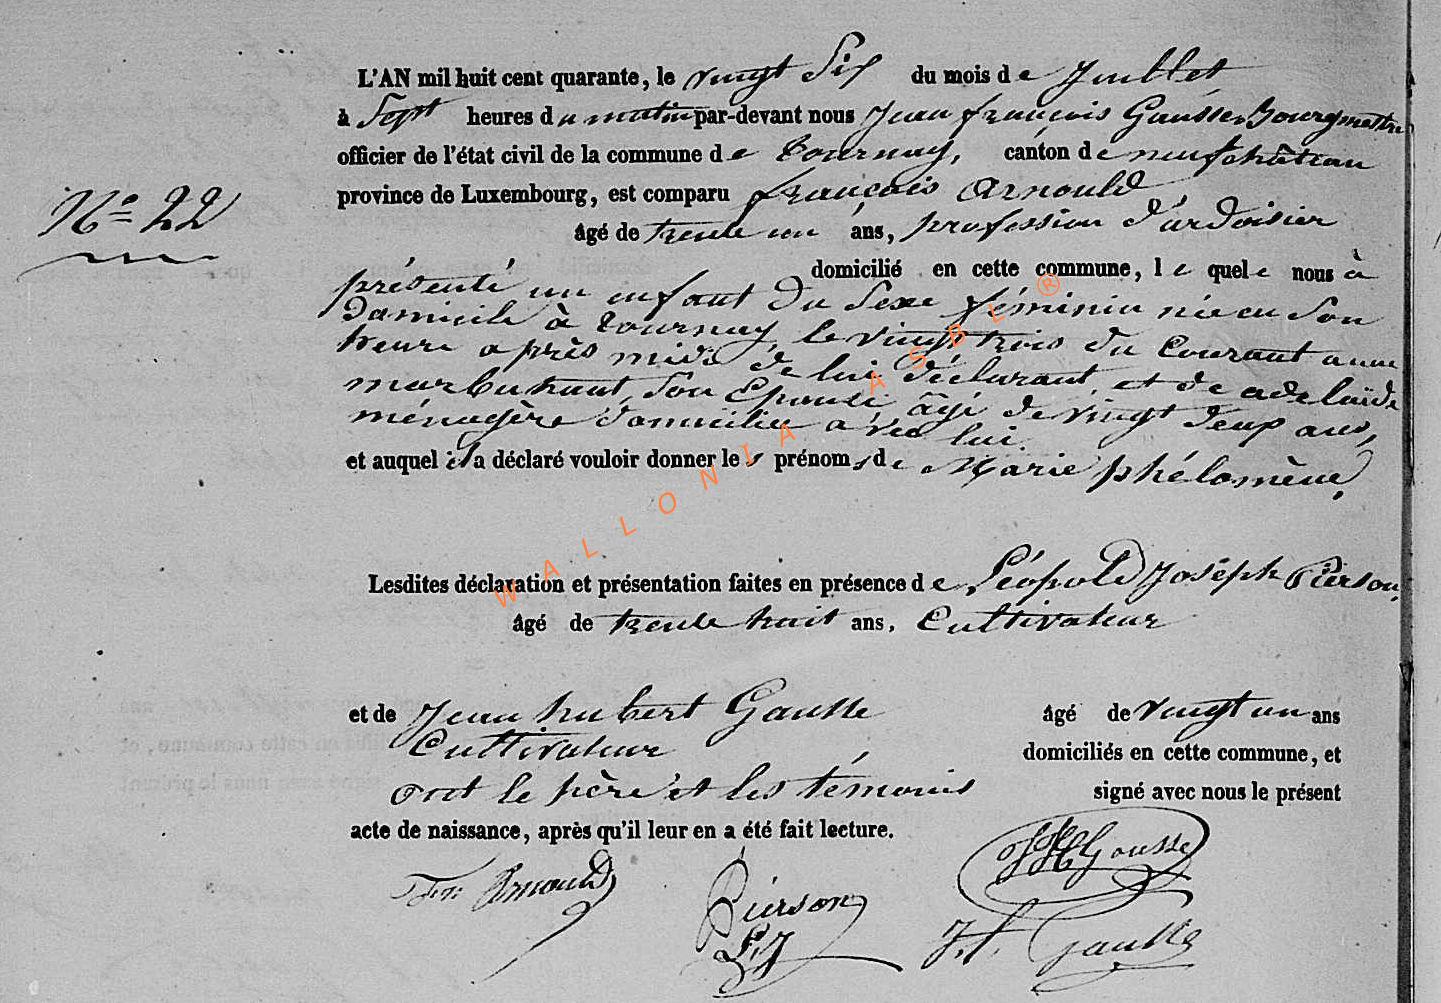 L'AN mil huit cent quarante, le vingt Six du mois de Juillet
à Sept heures du matin par-devant nous Jean françois Gausse, Bourgmettre
officier de l'état civil de la commune de Tournay, canton de neufchâteau
N° 22
province de Luxembourg, est comparu françois Arnould,
âgé de trente un ans, profession d'ardoisier
domicilié en cette commune, le quel nous à
présenté un enfant du Sexe féminin née en Son
domicile à Tournay, le vingt trois du Courant a une
heure après midi de lui déclarant, et de adelaïde
marbuhant, Son Epouse âgé de vingt deux ans,
ménagère domiciliée avec lui.
et auquel il a déclaré vouloir donner les prénoms de Marie phélomène.
WALLONIA ASBL ®
Lesdites déclaration et présentation faites en présence de Léopold Joseph Pierson,
âgé de trente huit ans, Cultivateur
et de Jean hubert Gausse âgé de vingt un ans
Cultivateur domiciliés en cette commune, et
ont le père et les témoins signé avec nous le présent
acte de naissance, après qu'il leur en a été fait lecture.
Arnould
Pierson
L, J
J H Gausse
J. f. Gausse